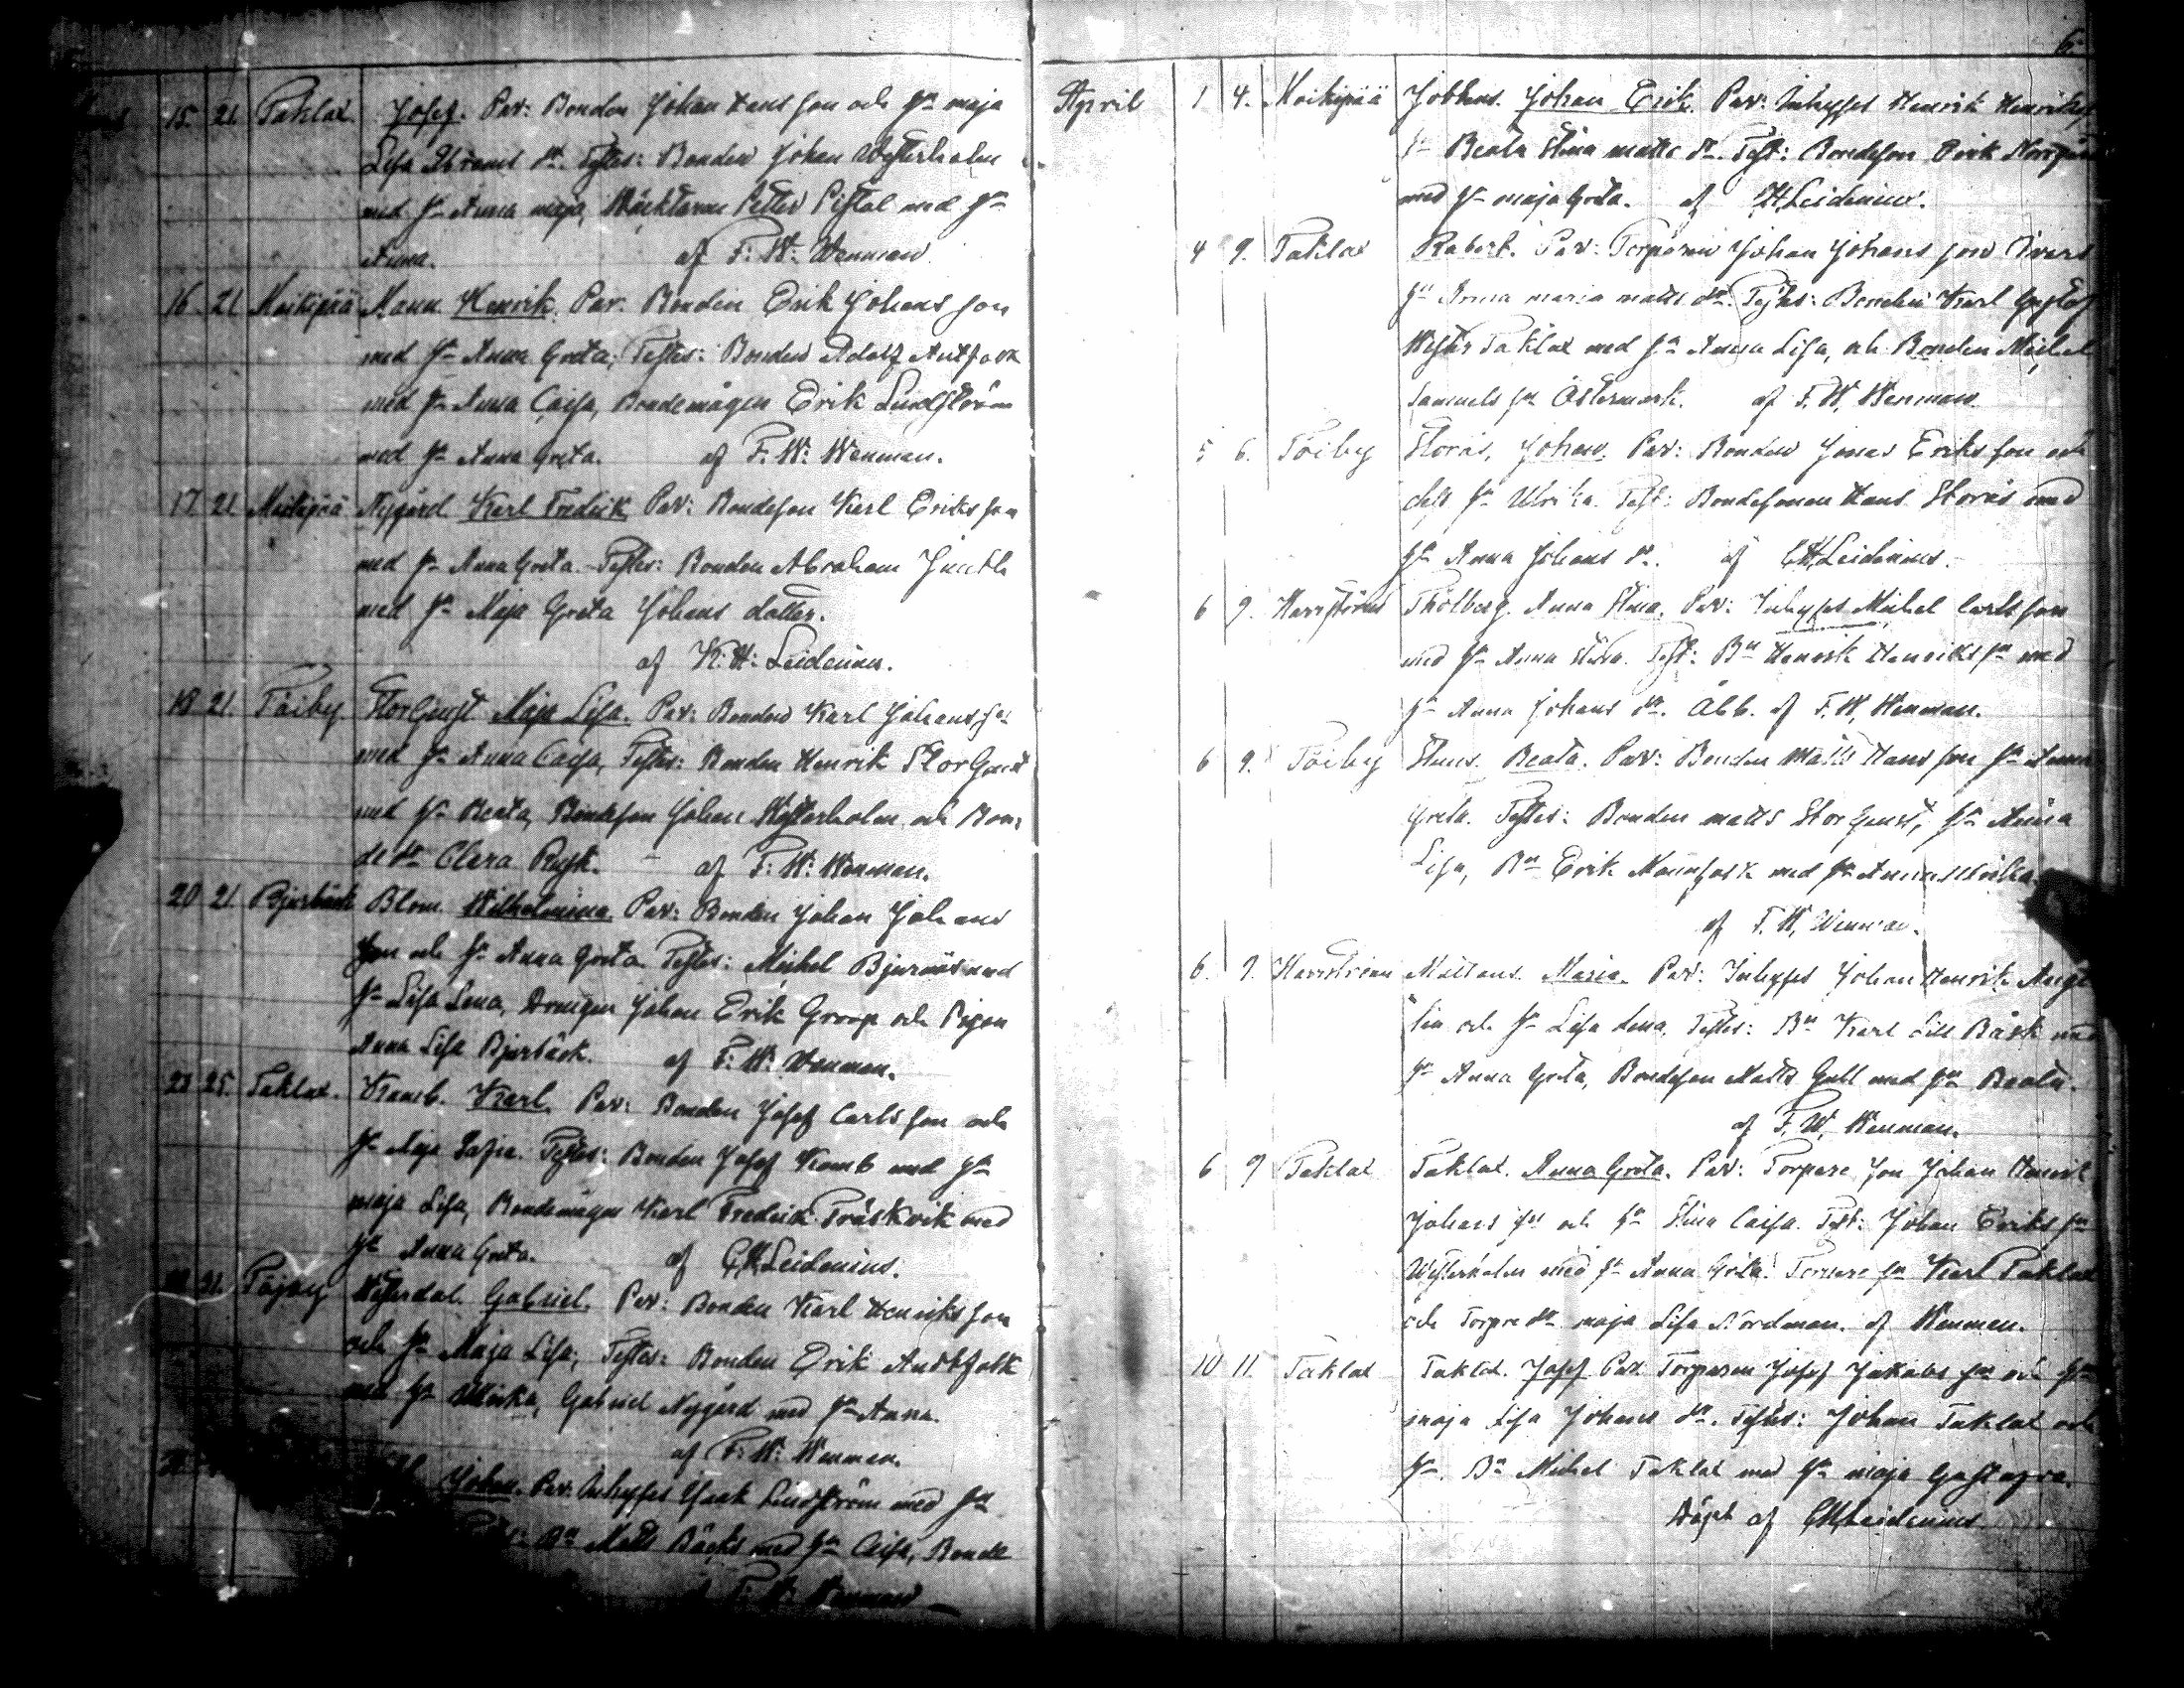 15. 21. Taklax Josef. Par: Bonden Johan Hans son och hu maja
Lisa Abrams dr. Testes: Bonden Johan Westerholm
med hu Anna maja, Petter Pistol med hu
Anna. af F. W. Wenman
16. 21 Moikipää Mann. Henrik. Par. Bonden Erik Johans son
med hu Anna Greta, Testes: Bonden Adolf Antfolk
med hu Anna Caisa, Bondemågen Erik Lindström
med hu Anna Greta. af F. W. Wenman.
17 21 Moikipää Nygård Karl Fredrik Par: Bondeson Karl Eriks son
med hu Anna Greta. Testes: Bonden Abraham
med hu Maja Greta Johans dotter.
af K. H. Leidenius.
18 21. Töiby Storgeust Maja Lisa. Par: Bonden Karl Johans sn
med hu Anna Caisa, Testes: Bonden Henrik Storgeust
med hu Beata, Bondeson Johan Westerholm och Bon-
de dr Clara Rusk. af F. W. Wenman.
20 21 Bjurbäck Blom. Wilhelmina. Par: Bonden Johan Johans
son och hu Anna Greta. Testes: Michel Bjurnäs med
hu Lisa Lena, Drengen Johan Erik Groop och Pigan
Anna Lisa Bjurbäck. af F. W. Wenman.
23 25. Taklax. Kamb. Karl. Par: Bonden Josef Carls son och
hu Maja Safia. Testes: Bonden Josef Kamb med hu
maja Lisa, Bondemågen Karl Fredrick Träskvik med
hu Anna Greta. af CH Leidenius.
31. Töjby Westerdal. Gabriel. Par: Bonden Karl Henriks son
och hu Maja Lisa, Testes: Bonden Erik Antfolk
med hu Ulrika, Gabriel Nygård med hu Anna.
af F. W. Wenman.
Johan. Par: Inhyses Isak Lindström med hu
Bn Matts Bäcks med hu Caisa, Bonde
F. W. Wenman
6
April 1 4. Moikipää Jobbens. Johan Erik. Par: Inhyses Henrik Henriks
hu Beata Stina Matts dr. Test: Bondeson Erik Norrgård
med hu maja Greta. af CH Leidenius.
4 9. Taklax Robert. Par: Torparen Johan Johans son
hu Anna maria matts dr. Testes: Bonden Karl Gustaf
Wester Taklax med hu Anna Lisa, och Bonden Michel
Samuels sn Östermark. af F. W. Wenman
5 6. Töiby Storås. Johan. Par: Bonden Jonas Eriks son och
dess hu Ulrika. Test: Bondesonen Hans Storås med
hu Anna Johans dr. af CH Leidenius.
6 9. Harrström Thölberg. Anna Stina. Par: Inhyses Michel Carls son
med hu Anna Stina. Test: Bn Henrik Henriks sn med
hu Anna Johans dr. Åbb. af F. W. Wenman.
6 9. Töiby Beata. Par: Bonden Matts Hans son hu Anna
Greta. Testes: Bonden matts Storgeust, hu Anna
Lisa, Bn Erik Mannfolk med hu Anna Ulrika.
af F. W. Wenman.
6. 9. Harrström Mattans. Maria. Par: Inhyses Johan Henrik Ange
lin och hu Lisa Lena. Testes: Bn Karl Lill Båsk med
hu Anna Greta, Bondeson Matts Gull med hu Beata.
af F. W. Wenman.
6 9 Taklax Taklax. Anna Greta. Par: Torpare son Johan Henrik
Johans sn och hu Stina Caisa. Test: Johan Eriks sn
Westerholm med hu Anna Greta. Torpare sn Karl Taklax
och Torpare dr maja Lisa Nordman. af Wenman.
10 11. Taklax Taklax. Josef Par. Torparen Josef Jakobs sn och hu
maja Lisa Johans dr. Testes: Johan Taklax och
hu. Bn Michel Taklax med hu maja Gustafva.
Döpt af CH Leidenius